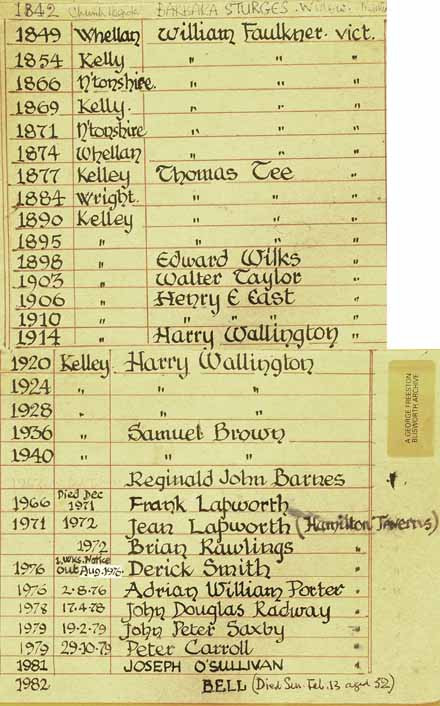 1842 Church Records BARBARA STURGES. Widow.
1849 Whellan William Faulkner. vict.
1854 Kelly " " "
1866 N'tonshire. " " "
1869 Kelly. " " "
1871 N'tonshire " " "
1874 Whellan " " "
1877 Kelley Thomas Tee "
1884 Wright. " " "
1890 Kelley " " "
1895 " " " "
1898 " Edward Wilks "
1903 " Walter Taylor "
1906 " Henry E East "
1910 " " " " "
1914 " Harry Wallington "
1920 Kelley. Harry Wallington
1924 " " "
1928 " " "
1936 " Samuel Brown
1940 " " "
Reginald John Barnes "
1966 Died Dec 1971 Frank Lapworth
1971 1972 Jean Lapworth (Hamilton Taverns)
1972 Brian Rawlings "
1976 2. Wks. Notice out Aug. 1976. Derick Smith "
1976 2-8-76 Adrian William Porter "
1978 17.4.78 John Douglas Radway "
1979 19-2-79 John Peter Saxby "
1979 29-10-79 Peter Carroll "
1981 JOSEPH O'SULLIVAN "
1982 BELL (Died Sun. Feb. 13 aged 52)
A GEORGE FREESTON
BLISWORTH ARCHIVE